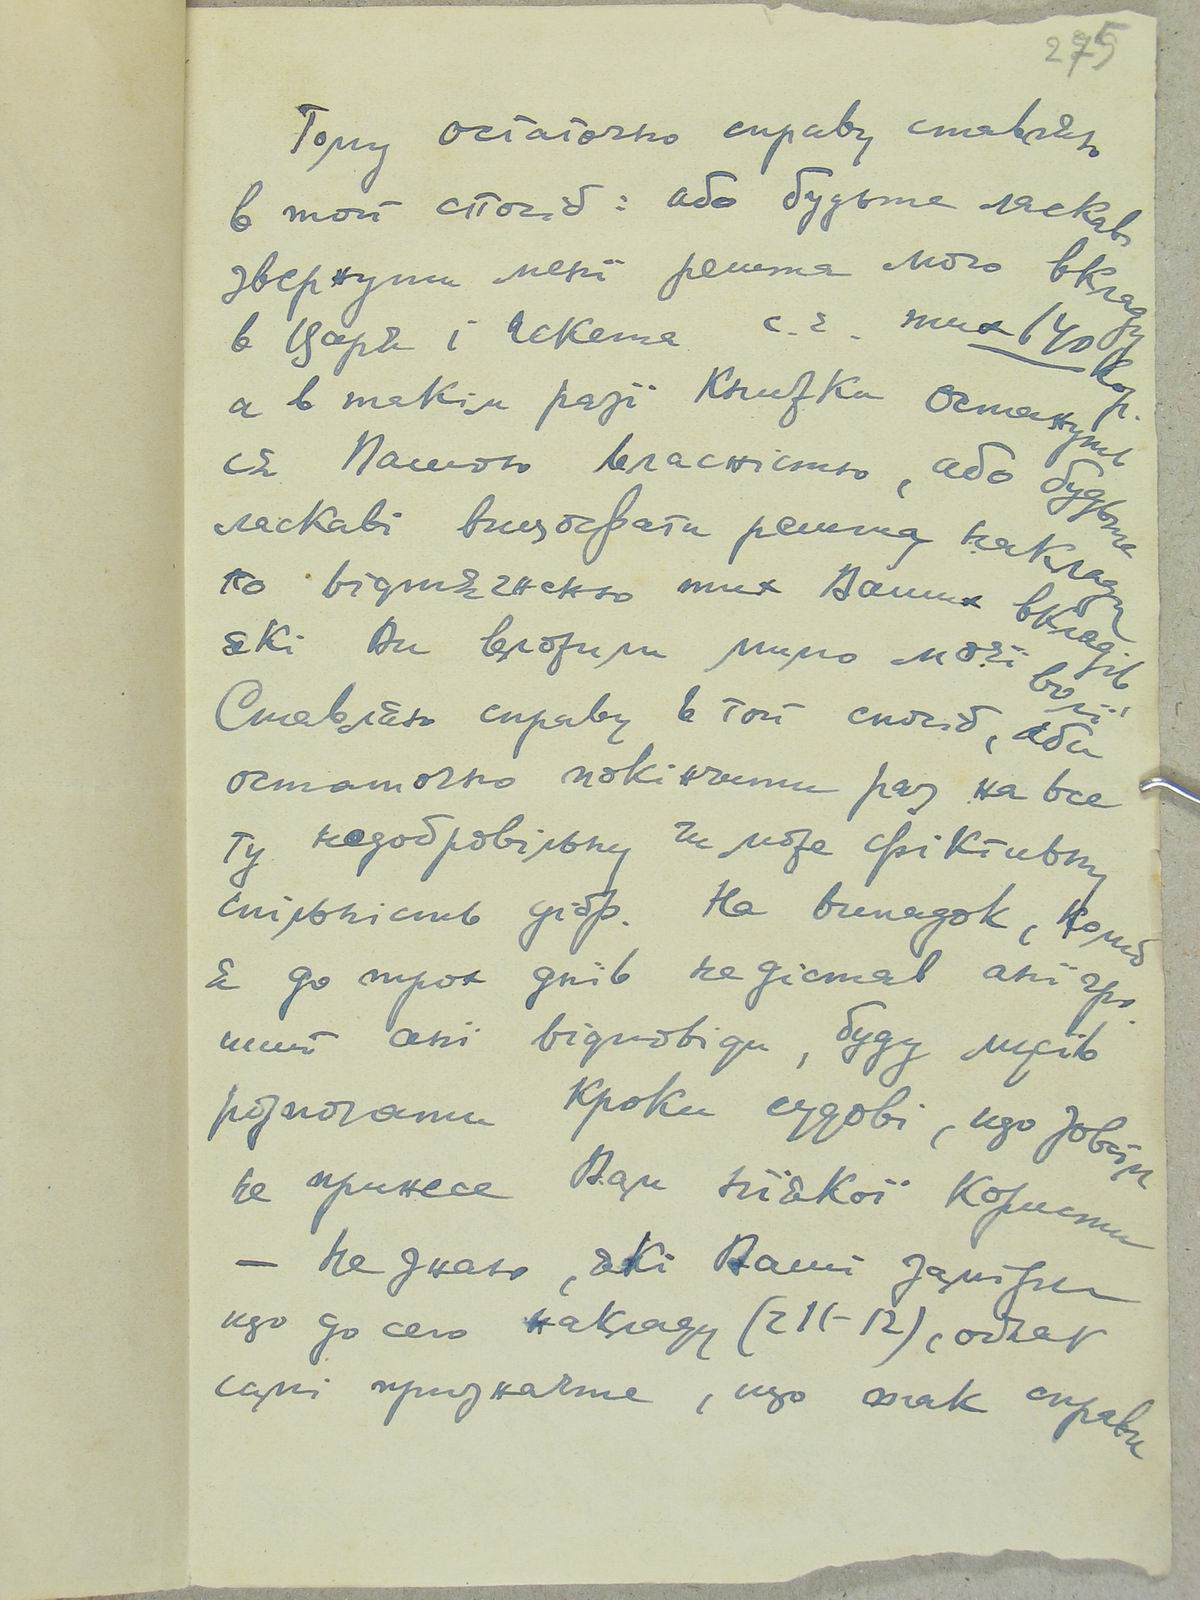 275
Тому остаточно справу ставляю
в той спосіб: або будьте ласкаві
звернути мені решта мого вкладу
в Царя і Аскета с. є. тих 140 кор.
а в такім разі книжки остануть
ся Вашою власністю, або будьте
ласкаві вицофати решту накладу
по відтягненю тих Ваших вкладів
які Ви вложили мимо моєї волі.
Ставляю справу в той спосіб, аби
остаточно покінчити раз на все
ту недобровільну чи може фіктивну
спільність дібр. На випадок, колиб
я до трох днів не дістав ані гро
ший ані відповіди, буду мусів
розпочати кроки судові, що зовсім
не принесе Вам ніякої користи
— Не знаю, які Ваші заміри
що до сего накладу (211-12), однак
самі признаєте, що так справи